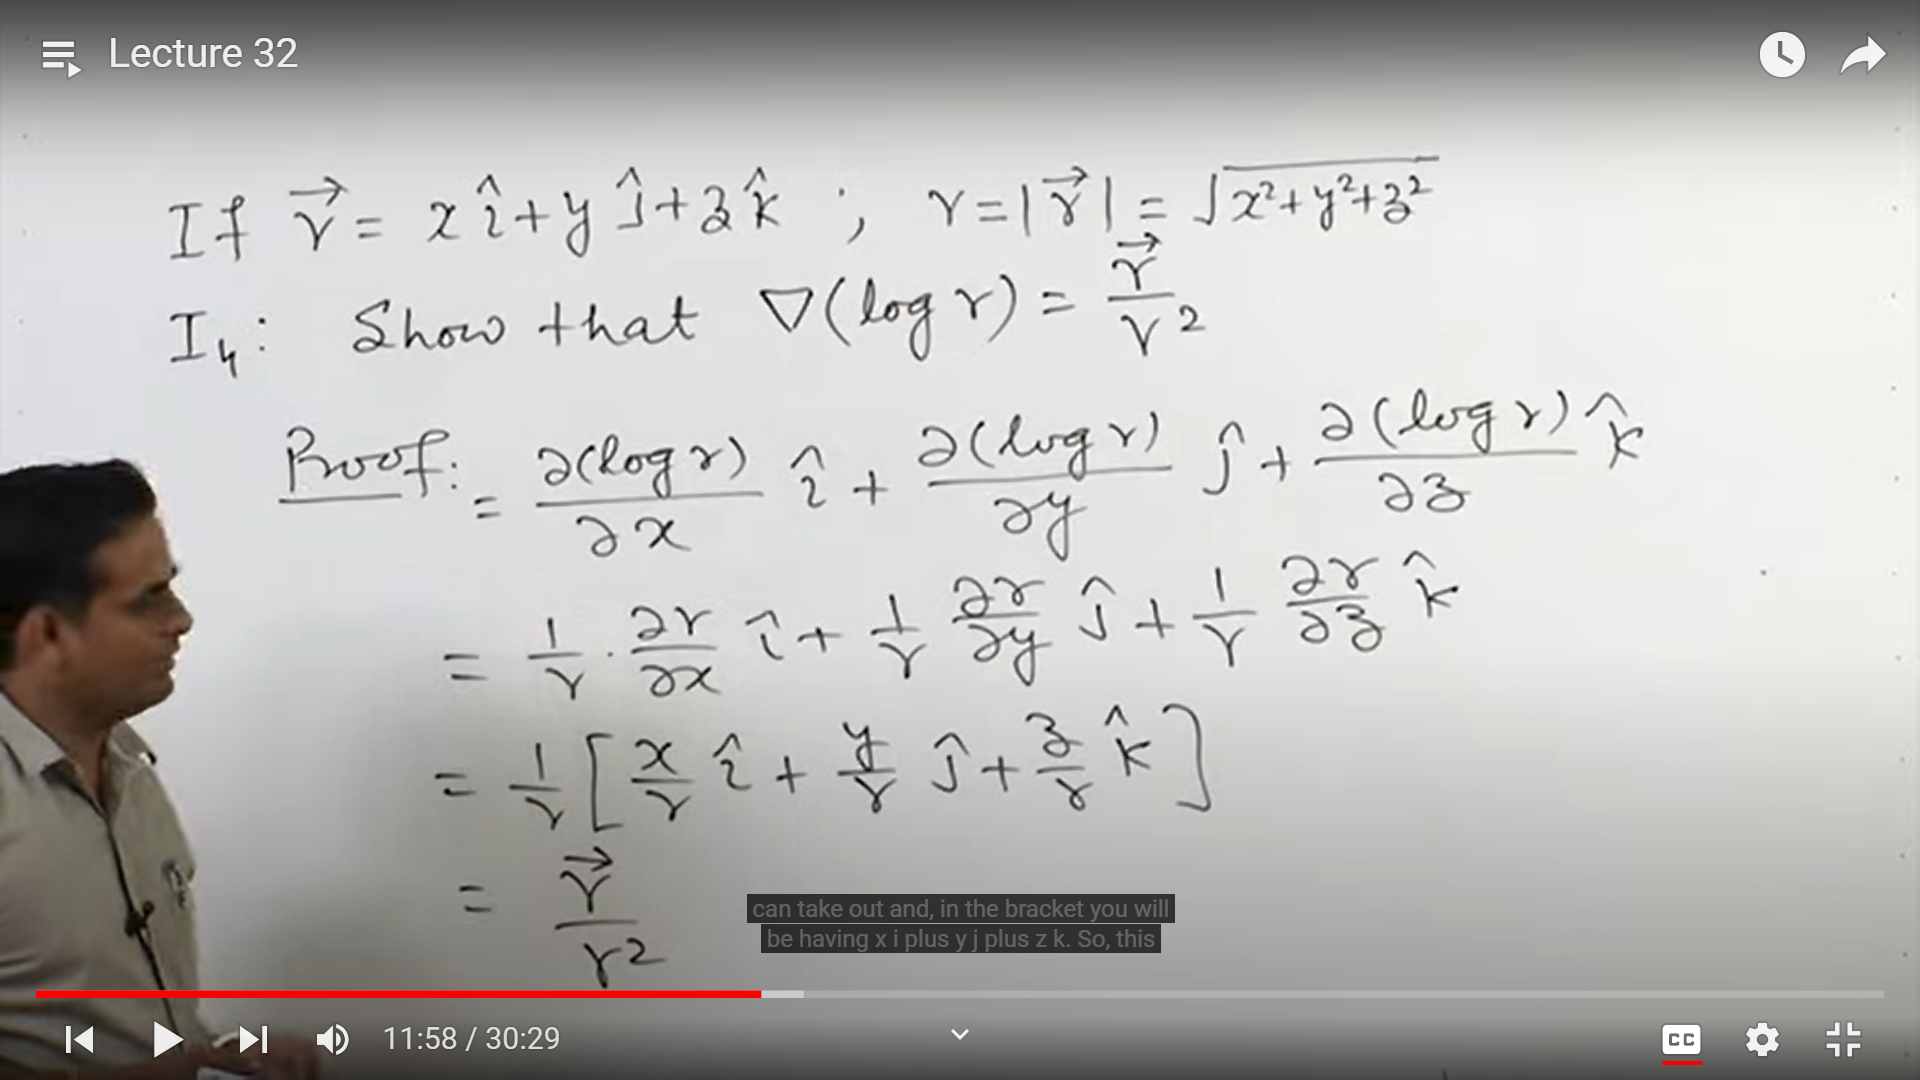 Lecture 32
If r⃗ = x î + y ĵ + z k̂ ; r = |r⃗| = √x²+y²+z²
I₄: Show that ∇(log r) = r⃗/r²
Proof: = ∂(log r)/∂x î + ∂(log r)/∂y ĵ + ∂(log r)/∂z k̂
= 1/r · ∂r/∂x î + 1/r ∂r/∂y ĵ + 1/r ∂r/∂z k̂
= 1/r [ x/r î + y/r ĵ + z/r k̂ ]
= r⃗/r²
can take out and, in the bracket you will
be having x i plus y j plus z k. So, this
11:58 / 30:29
CC